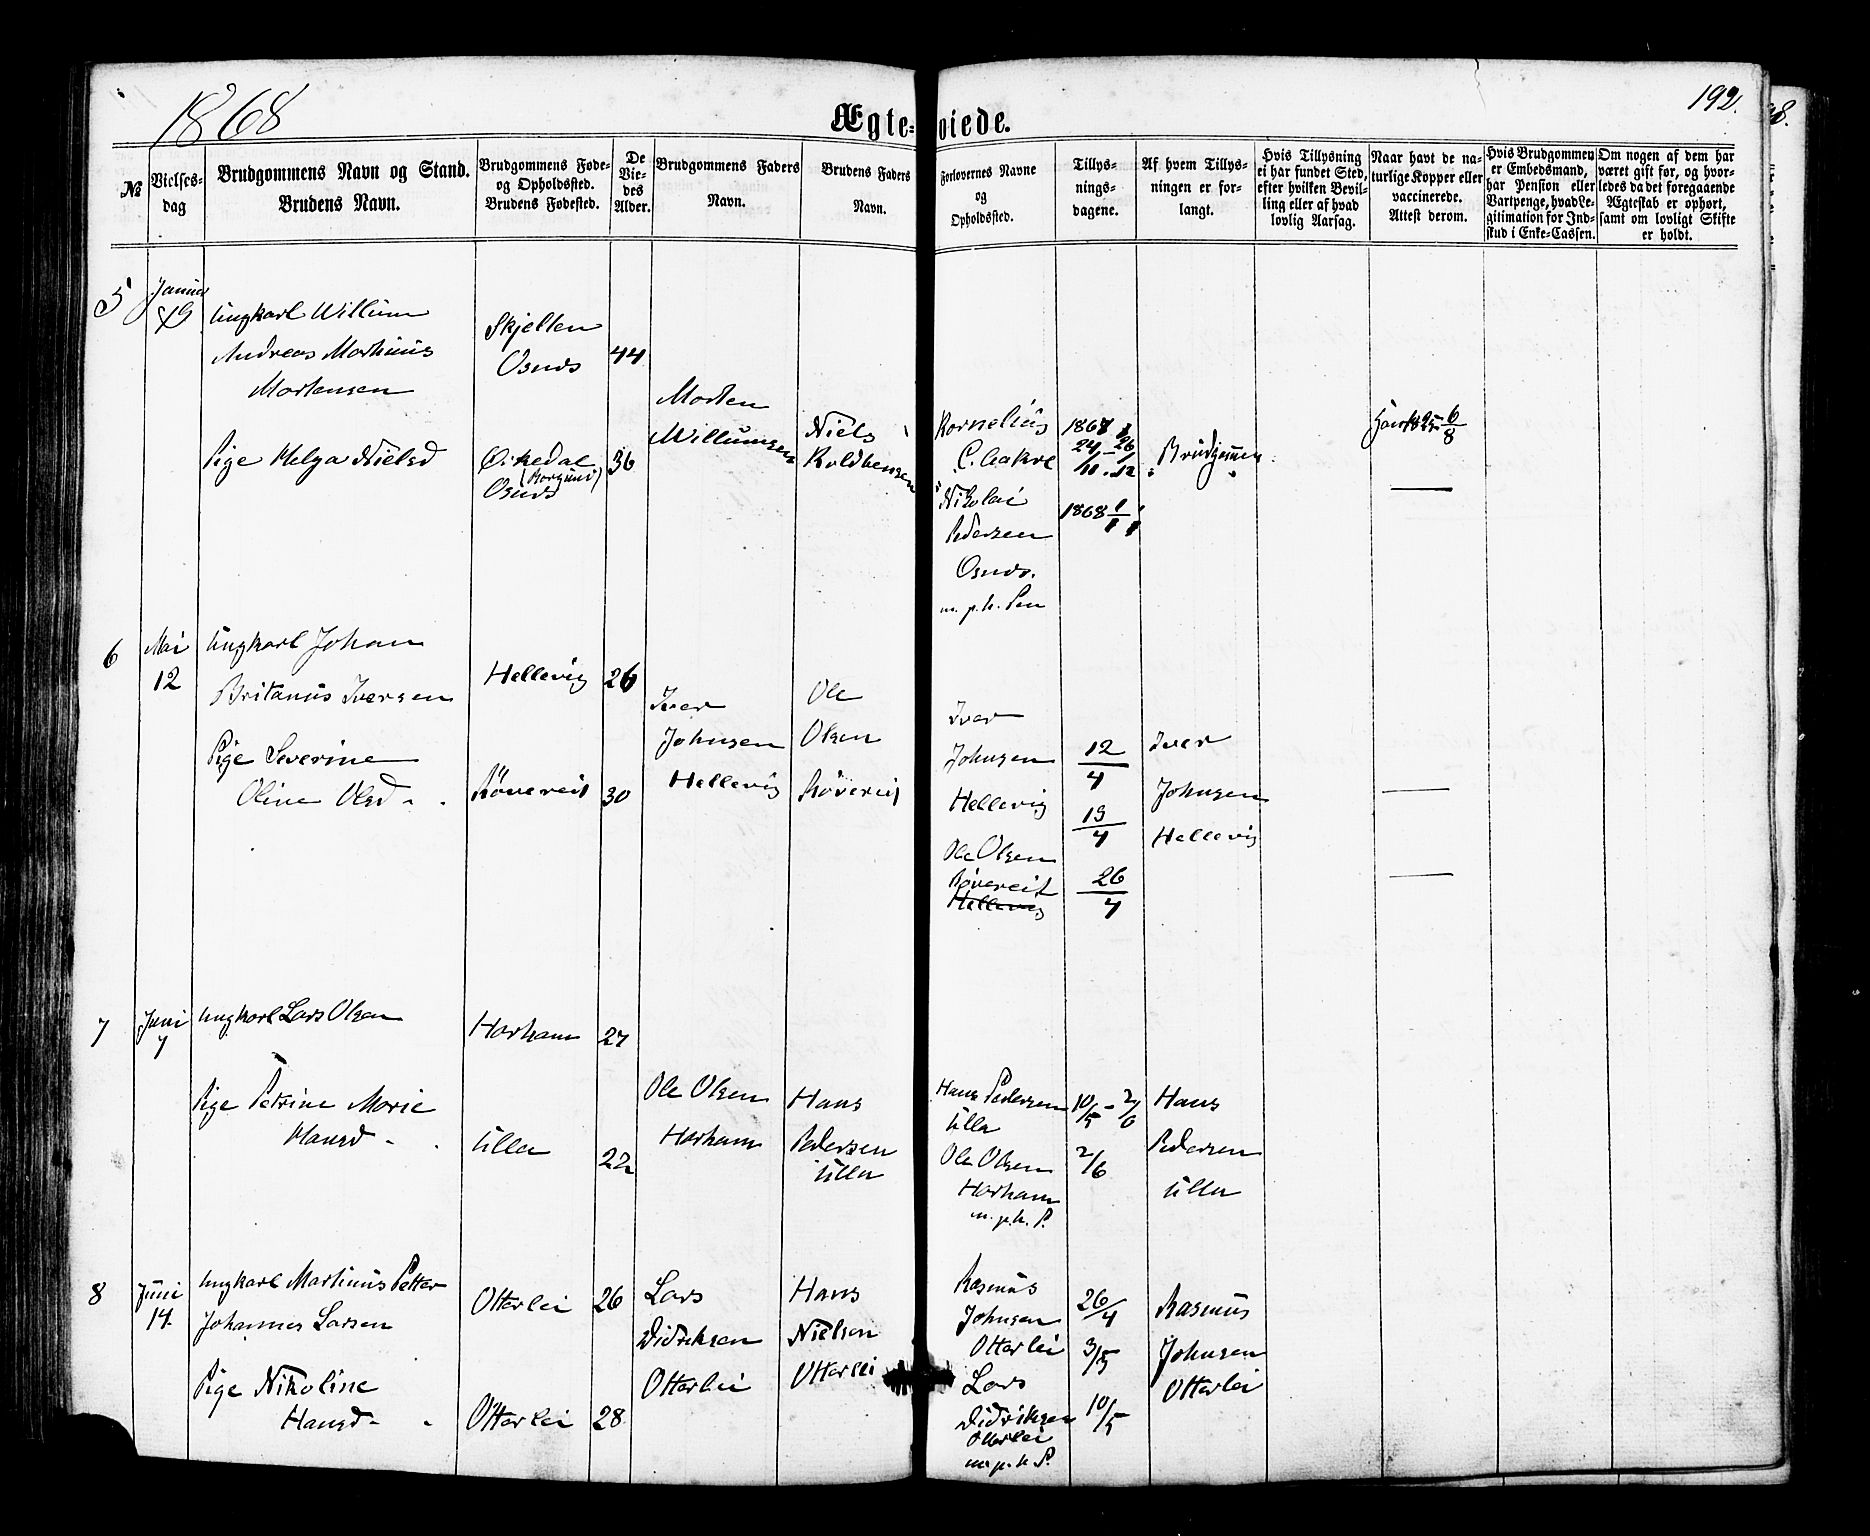 1868
192.
Ægte-
viede.
№
Vielses-
dag
Brudgommens Navn og Stand.
Brudens Navn.
Brudgommens Føde-
og Opholdssted.
Brudens Fødested.
De
Vie-
des
Alder.
Brudgommens Faders
Navn.
Brudens Faders
Navn.
Forlovernes Navne
og
Opholdssted.
Tillys-
nings-
dagene.
Af hvem Tillys-
ningen er for-
langt.
Hvis Tillysning
ei har fundet Sted,
efter hvilken Bevil-
ling eller af hvad
lovlig Aarsag.
Naar havt de na-
turlige Kopper eller
vaccinerede.
Attest derom.
Hvis Brudgommen
er Embedsmand,
har Pension eller
Vartpenge, hvad Le-
gitimation for Ind-
skud i Enke-Cassen.
Om nogen af dem har
været gift før, og hvor-
ledes da det foregaaende
Ægteskab er ophørt,
samt om lovligt Skifte
er holdt.
5
Januar
Ungkarl Willum
Andreas Martinus
Mortensen
Skjelten
Osnes
44
Morten
Willumsen
Niels
Pige Helga Nielsd
Osnes
36
Kornelius
C. Aakre
Nikolai
Pedersen
Osnes.
m. p. h. Pen
1868
24 - 26
11 . 12
1868 1/1
Brudgommen
6/8
6
Mai
12
Ungkarl Johan
Britanus Iversen
Hellevig
26
Iver
Johnsen
Hellevig
Ole
Olsen
Røvereit
Pige Severine
Oline Olsd - .
Røvereit
30
Iver
Johnsen
Hellevig
Ole Olsen
Røvereit
Hellevig
12/4
19/4
26/4
Iver
Johnsen
Hellevig
7
Juni
7
Ungkarl Lars Olsen
Harham
27
Pige Petrine Marie
Hansd - .
Ulla
22
Ole Olsen
Harham
Hans
Pedersen
Ulla
Hans Pedersen
Ulla
Ole Olsen
Harham
m. p. h. P.
10/5 - 2/6
2/6
Hans
Pedersen
Ulla
8
Juni
14
Ungkarl Martinus Petter
Johannes Larsen
Otterlei
26
Lars
Didriksen
Otterlei
Hans
Nielsen
Otterlei
Pige Nikoline
Hansd - .
Otterlei
28
Rasmus
Johnsen
Otterlei
Lars
Didriksen
Otterlei
m. p. h P.
26/4
3/5
10/5
Rasmus
Johnsen
Otterlei